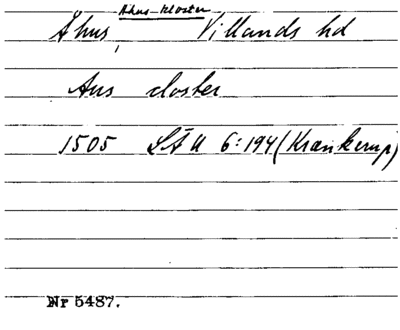 Åhus kloster
Åhus, Villands hd
Aus closter
1505 LÄU 6:194 (Krankerup)
Nr 5487.